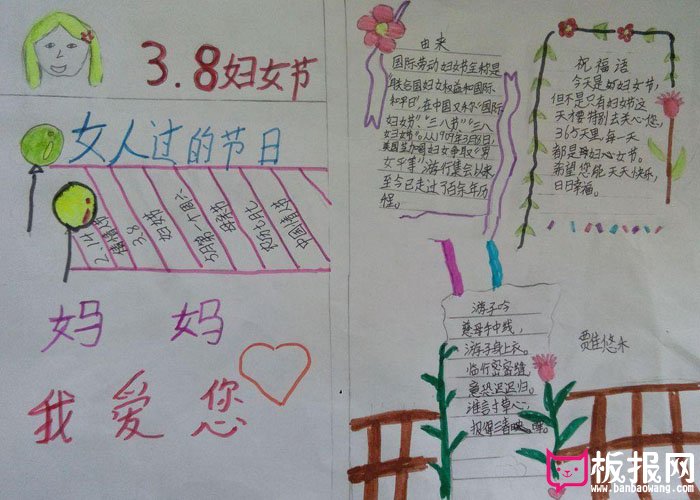 3.8妇女节
女人过的节日
2.14
情人节
3.8
妇女节
5月第一个周六
母亲节
农历七月七
中国情人节
妈 妈
我 爱 您
由来
国际劳动妇女节全称是
"联合国妇女权益和国际
和平日",在中国又称"国际
妇女节""三八节""三八
妇女节"。从1909年3月8日,
美国芝加哥妇女争取"男
女平等"游行集会以来
至今已走过了百年年历
程。
祝福语
今天是妇女节,
但不是只有妇女节这
天才特别去关心您,
365天里,每一天
都是妇女节。
希望您能天天快乐,
日日幸福。
游子吟
慈母手中线,
游子身上衣。
临行密密缝,
意恐迟迟归。
谁言寸草心,
报得三春晖。
贾佳悠木
板报网
www.banbaowang.com